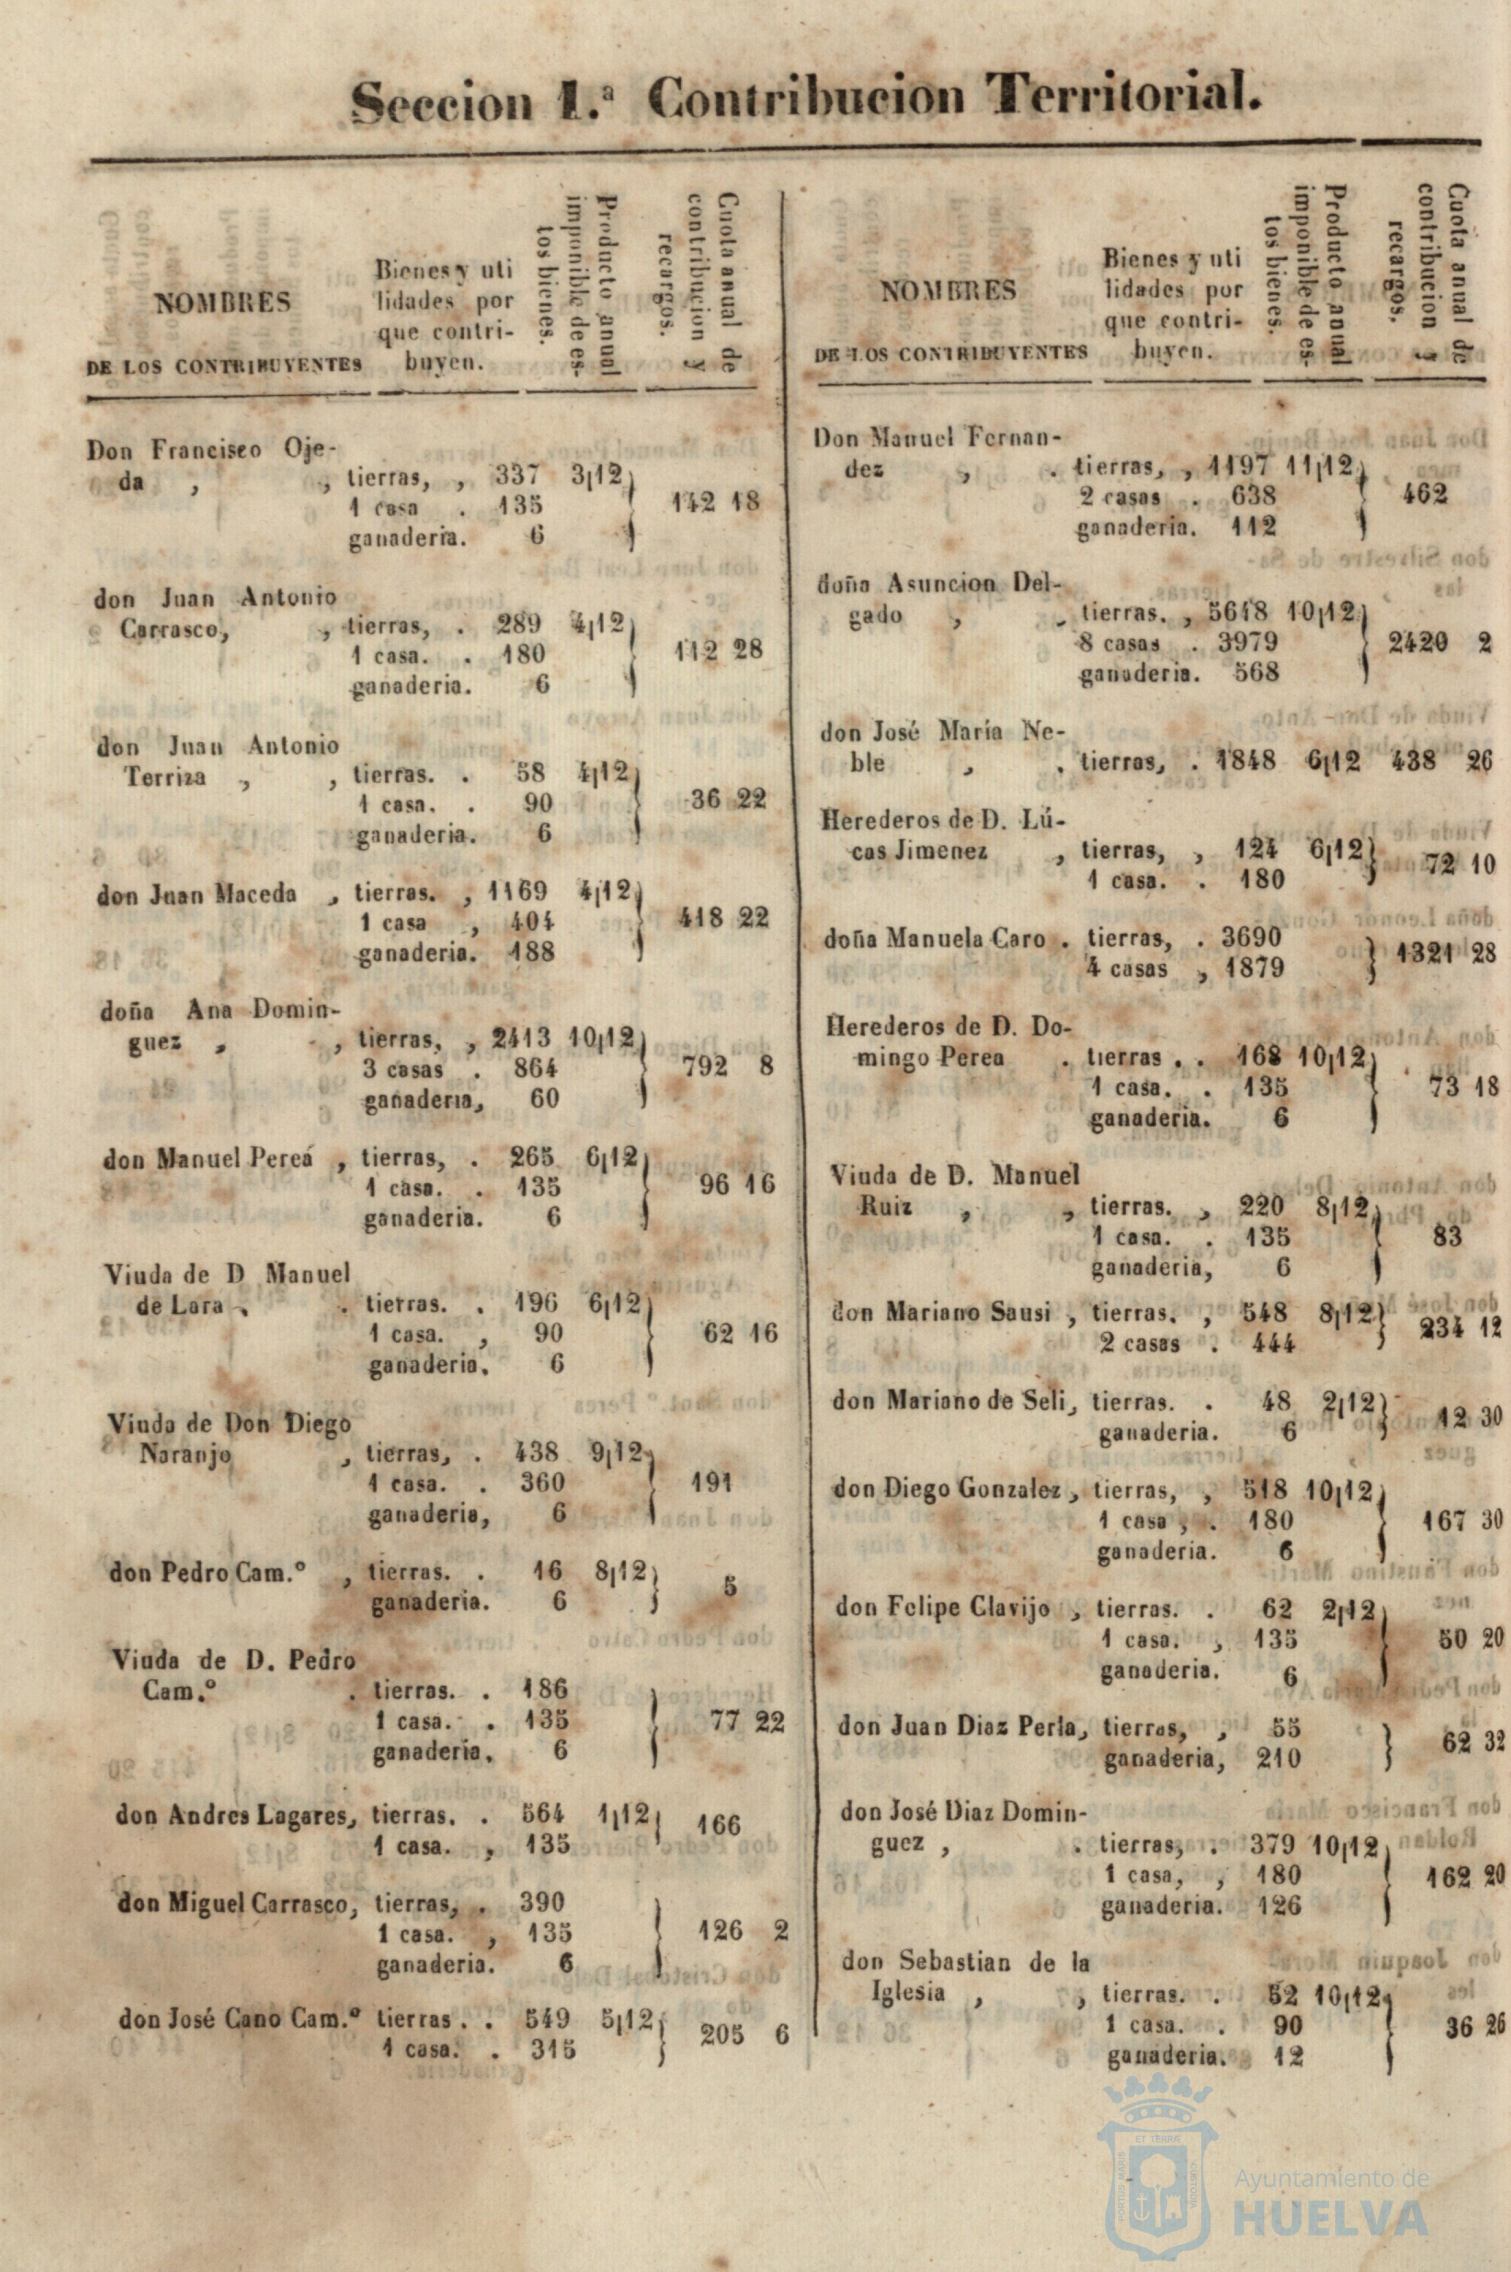 Seccion 1.ª Contribucion Territorial.
NOMBRES
DE LOS CONTRIBUYENTES
Bienes y uti
lidades por
que contri-
buyen.
Producto anual
imponible de es-
tos bienes.
Cuota anual de
contribucion y
recargos.
Don Francisco Oje-
da , , tierras, , 337 3|12
1 casa . 135 142 18
ganaderia. 6
don Juan Antonio
Carrasco, , tierras, . 289 4|12
1 casa. . 180 112 28
ganaderia. 6
don Juan Antonio
Terriza , , tierras. . 58 4|12
1 casa. . 90 36 22
ganaderia. 6
don Juan Maceda , tierras. , 1169 4|12
1 casa , 404 418 22
ganaderia. 188
doña Ana Domin-
guez , , tierras, , 2413 10|12
3 casas . 864 792 8
ganaderia, 60
don Manuel Pereá , tierras, . 265 6|12
1 casa. . 135 96 16
ganaderia. 6
Viuda de D Manuel
de Lara , . tierras. . 196 6|12
1 casa. , 90 62 16
ganaderia. 6
Viuda de Don Diego
Naranjo , tierras, . 438 9|12
1 casa. . 360 191
ganaderia, 6
don Pedro Cam.º , tierras. . 16 8|12
ganaderia. 6 5
Viuda de D. Pedro
Cam.º . tierras. . 186
1 casa. . 135 77 22
ganaderia. 6
don Andres Lagares, tierras. . 564 1|12
1 casa. , 135 166
don Miguel Carrasco, tierras, . 390
1 casa. , 135 126 2
ganaderia. 6
don José Cano Cam.º tierras . . 549 5|12
1 casa. . 315 205 6
NOMBRES
DE LOS CONTRIBUYENTES
Bienes y uti
lidades por
que contri-
buyen.
Producto anual
imponible de es-
tos bienes.
Cuota anual de
contribucion y
recargos.
Don Manuel Fernan-
dez , . tierras, , 1197 11|12
2 casas . 638 462
ganaderia. 112
doña Asuncion Del-
gado , , tierras. , 5618 10|12
8 casas . 3979 2420 2
ganaderia. 568
don José María Ne-
ble , . tierras, . 1848 6|12 438 26
Herederos de D. Lú-
cas Jimenez , tierras, , 124 6|12
1 casa. . 180 72 10
doña Manuela Caro . tierras, . 3690
4 casas , 1879 1321 28
Herederos de D. Do-
mingo Perea . tierras . . 168 10|12
1 casa. . 135 73 18
ganaderia. 6
Viuda de D. Manuel
Ruiz , , tierras. , 220 8|12
1 casa. . 135 83
ganaderia, 6
don Mariano Sausi , tierras. , 548 8|12
2 casas . 444 234 12
don Mariano de Seli, tierras. . 48 2|12
ganaderia. 6 12 30
don Diego Gonzalez , tierras, , 518 10|12
1 casa , . 180 167 30
ganaderia. 6
don Felipe Clavijo , tierras. . 62 2|12
1 casa. , 135 50 20
ganaderia. 6
don Juan Diaz Perla, tierras, , 55
ganaderia, 210 62 32
don José Diaz Domin-
guez , . tierras, . 379 10|12
1 casa, , 180 162 20
ganaderia. 126
don Sebastian de la
Iglesia , , tierras. . 52 10|12
1 casa. . 90 36 26
ganaderia. 12
ET TERRÆ
PORTUS MARIS
CUSTODIA
Ayuntamiento de
HUELVA